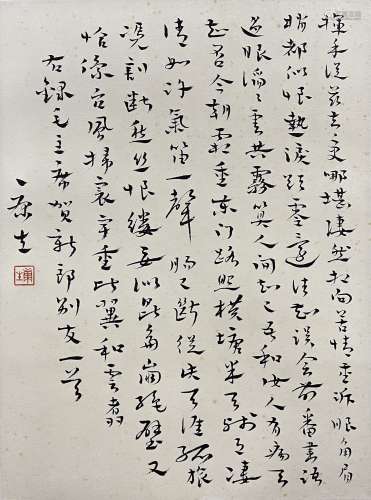 揮手從茲去更那堪凄然相向苦情重訴眼角眉
梢都似恨熱淚欲零還住知誤會前番書語
過眼滔々雲共霧算人間知己吾和汝人有病天
知否今朝霜重東門路照橫塘半天殘月凄
清如許氣笛一聲腸已斷從此天涯孤旅
憑割斷愁絲恨縷要似崑崙崩絕壁又
恰像台風掃寰宇重比翼和雲翥
右錄毛主席賀新郎別友一首